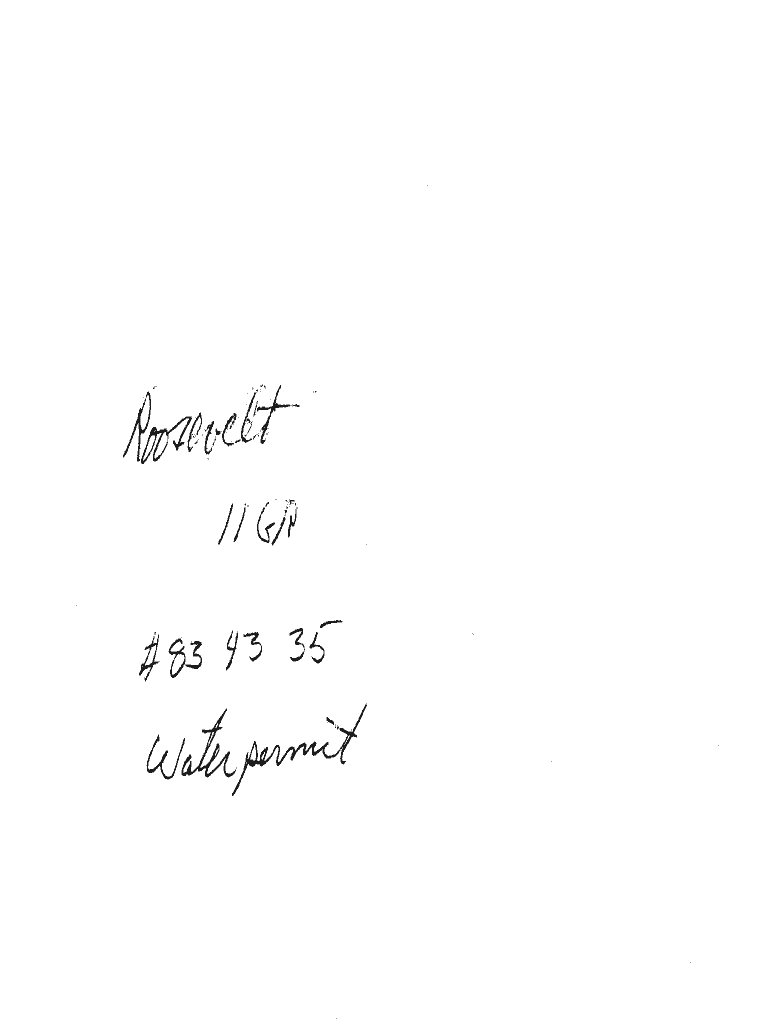 Roosevelt
11 GR
#83 43 35
Water permit